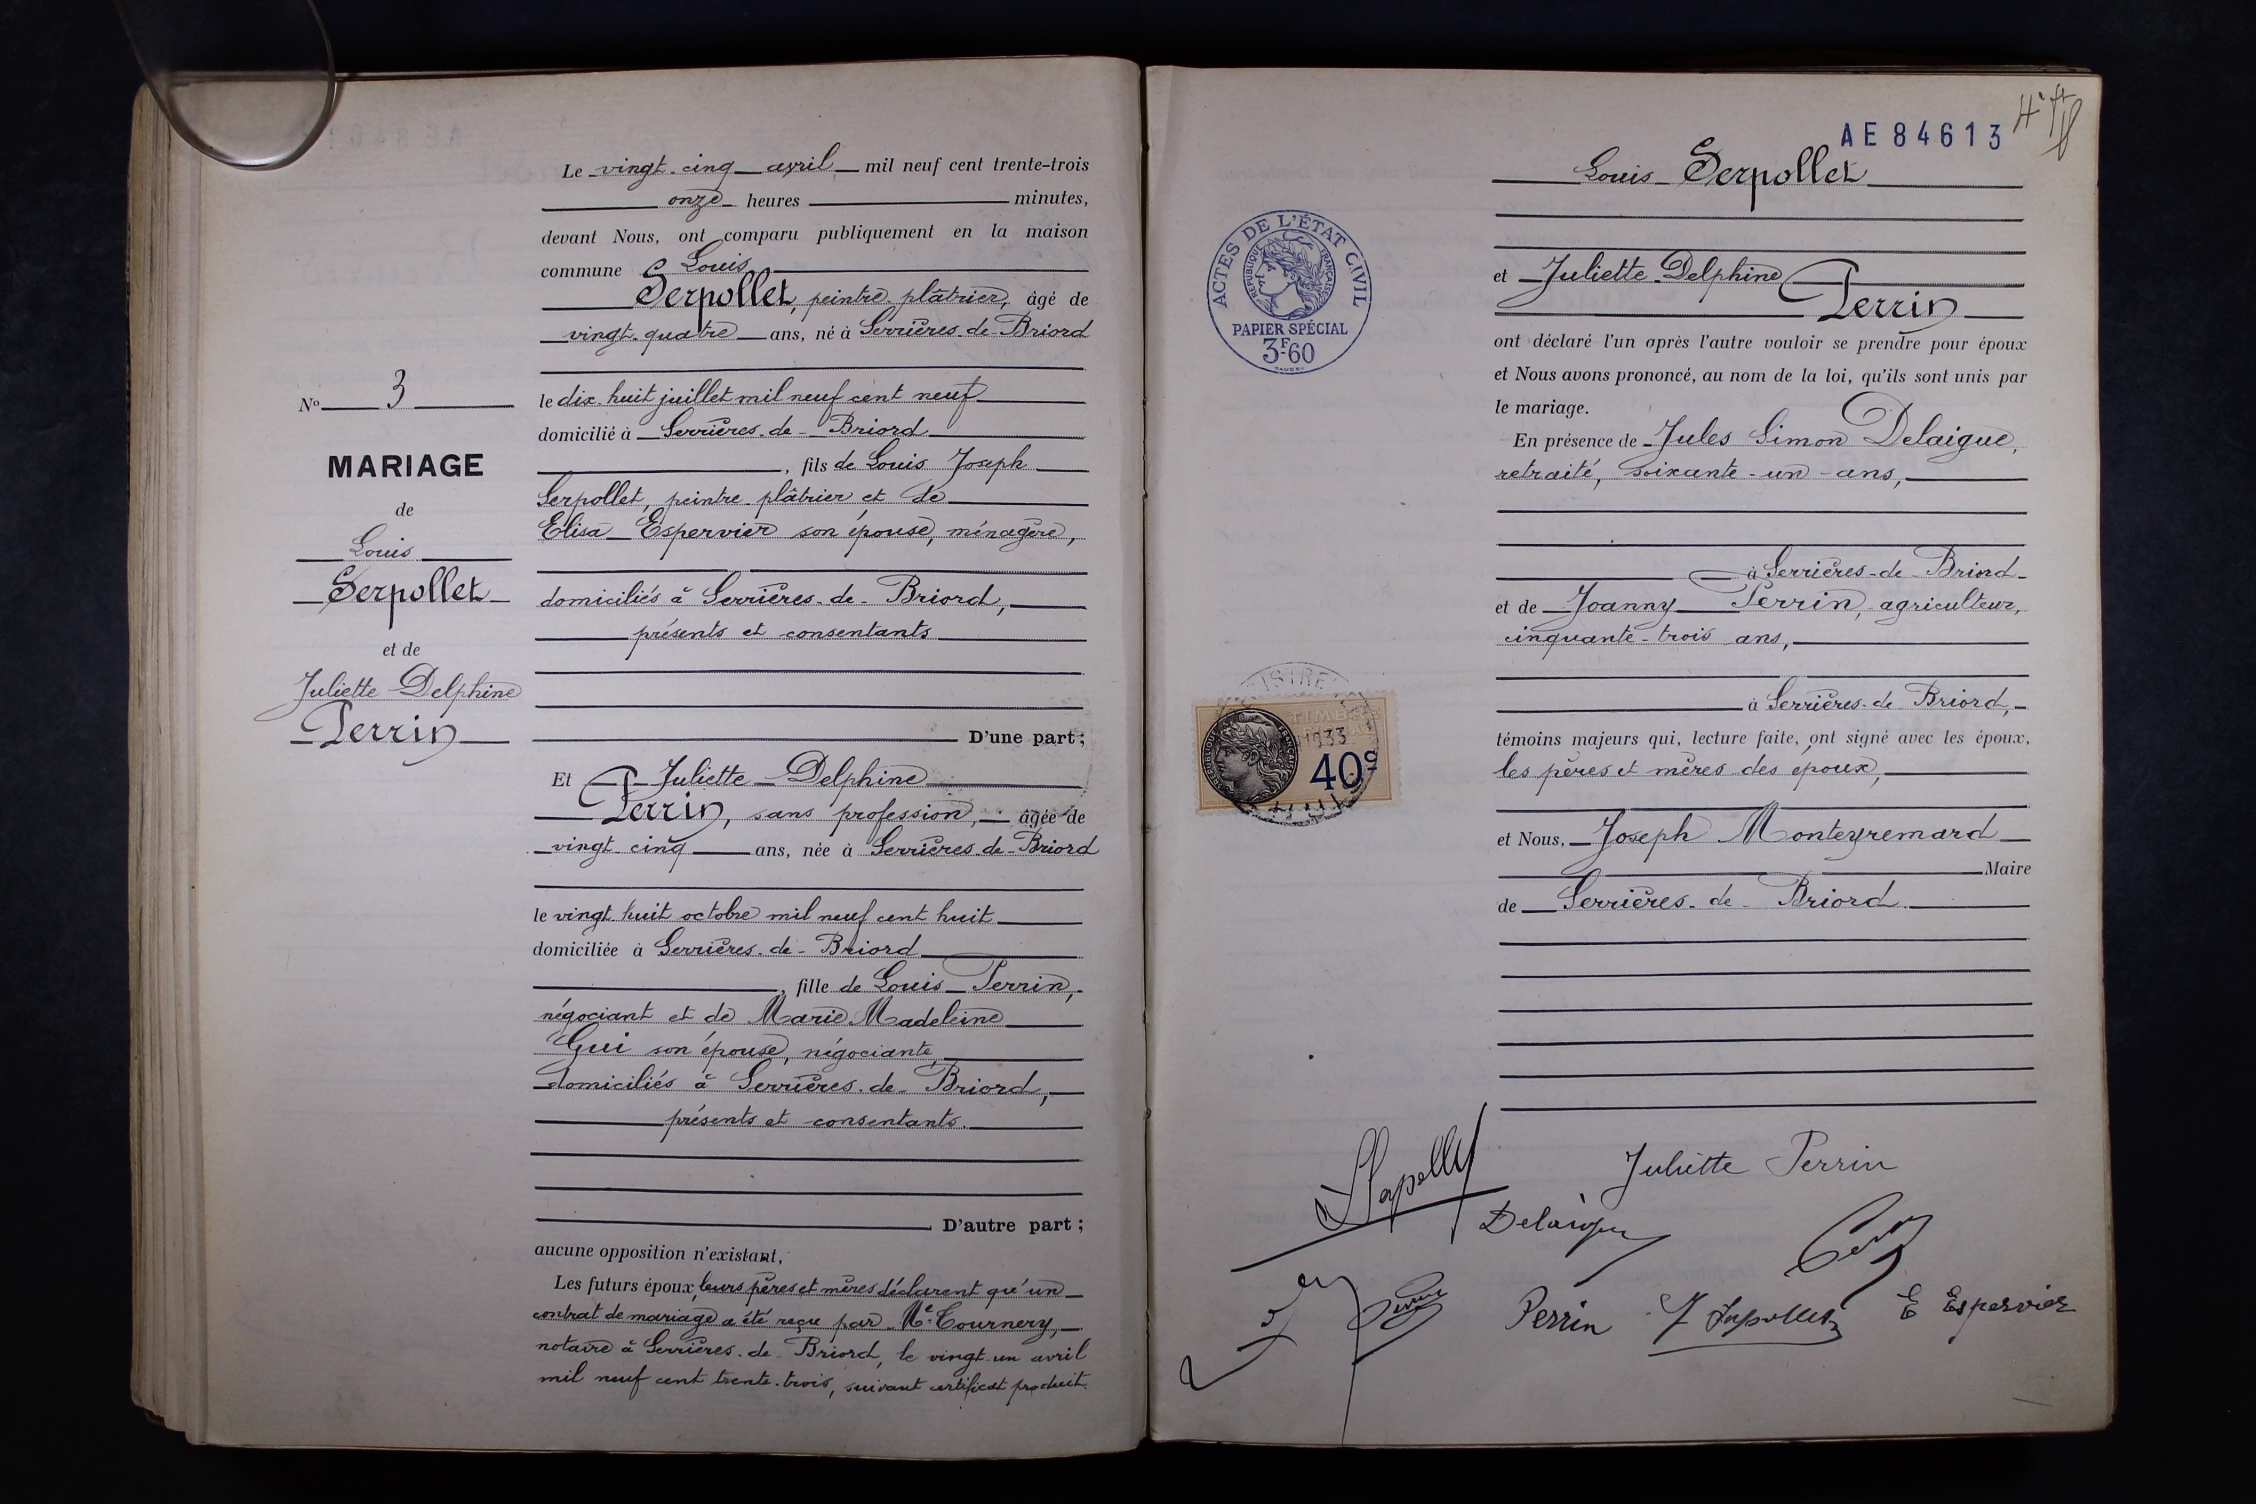 Le vingt-cinq avril mil neuf cent trente-trois
onze heures minutes,
devant Nous, ont comparu publiquement en la maison
commune Louis
Serpollet, peintre plâtrier, âgé de
vingt-quatre ans, né à Serrières-de-Briord
le dix-huit juillet mil neuf cent neuf
domicilié à Serrières-de-Briord
, fils de Louis Joseph
Serpollet, peintre-plâtrier et de
Elisa Espervier son épouse, ménagère,
domiciliés à Serrières-de-Briord,
présents et consentants
D'une part;
Et Juliette Delphine
Perrin, sans profession, âgée de
vingt-cinq ans, née à Serrières-de-Briord
le vingt-huit octobre mil neuf cent huit
domiciliée à Serrières-de-Briord
, fille de Louis Perrin,
négociant et de Marie Madeleine
Gui son épouse, négociante,
domiciliés à Serrières-de-Briord,
présents et consentants.
D'autre part;
aucune opposition n'existant,
Les futurs époux, leurs pères et mères déclarent qu'un
contrat de mariage a été reçu par Me Tournery,
notaire à Serrières-de-Briord, le vingt-un avril
mil neuf cent trente-trois, suivant certificat produit.
No 3
MARIAGE
de
Louis
Serpollet
et de
Juliette Delphine
Perrin
AE 84613
Louis Serpollet
et Juliette Delphine
Perrin
ont déclaré l'un après l'autre vouloir se prendre pour époux
et Nous avons prononcé, au nom de la loi, qu'ils sont unis par
le mariage.
En présence de Jules Simon Delaigue,
retraité, soixante-un-ans,
à Serrières-de-Briord
et de Joanny Perrin, agriculteur,
cinquante-trois ans,
à Serrières-de Briord,
témoins majeurs qui, lecture faite, ont signé avec les époux,
les pères et mères des époux,
et Nous, Joseph Monteyremard
Maire
de Serrières-de-Briord
ACTES DE L'ÉTAT CIVIL
RÉPUBLIQUE FRANÇAISE
PAPIER SPÉCIAL
3F60
TIMBRE
RÉPUBLIQUE FRANÇAISE
1933
40c
Juliette Perrin
Delaigue
Perrin
E Espervier